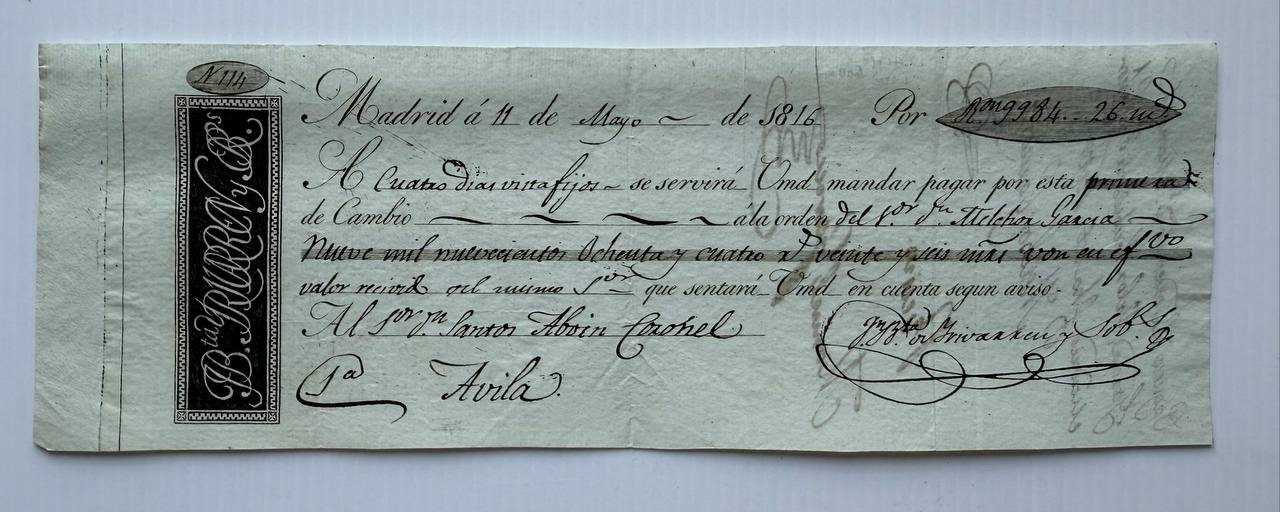 N 114
Madrid á 11 de Mayo de 1816 Por R.on 9984.. 26. md.
A Cuatro dias vista fijos se servirá Vmd mandar pagar por esta primera
de Cambio á la orden del S.or d.n Melchor Garcia
Nueve mil nuevecientos Ochenta y cuatro r.s veinte y seis mrs von en ef.vo
valor recivido del mismo S.or que sentará Vmd en cuenta segun aviso.
Al S.or d.n Santos Aboin Coronel
1.a Avila.
J. B.ta de Yrivarren y Sob.s
B.ta YRIVARREN y